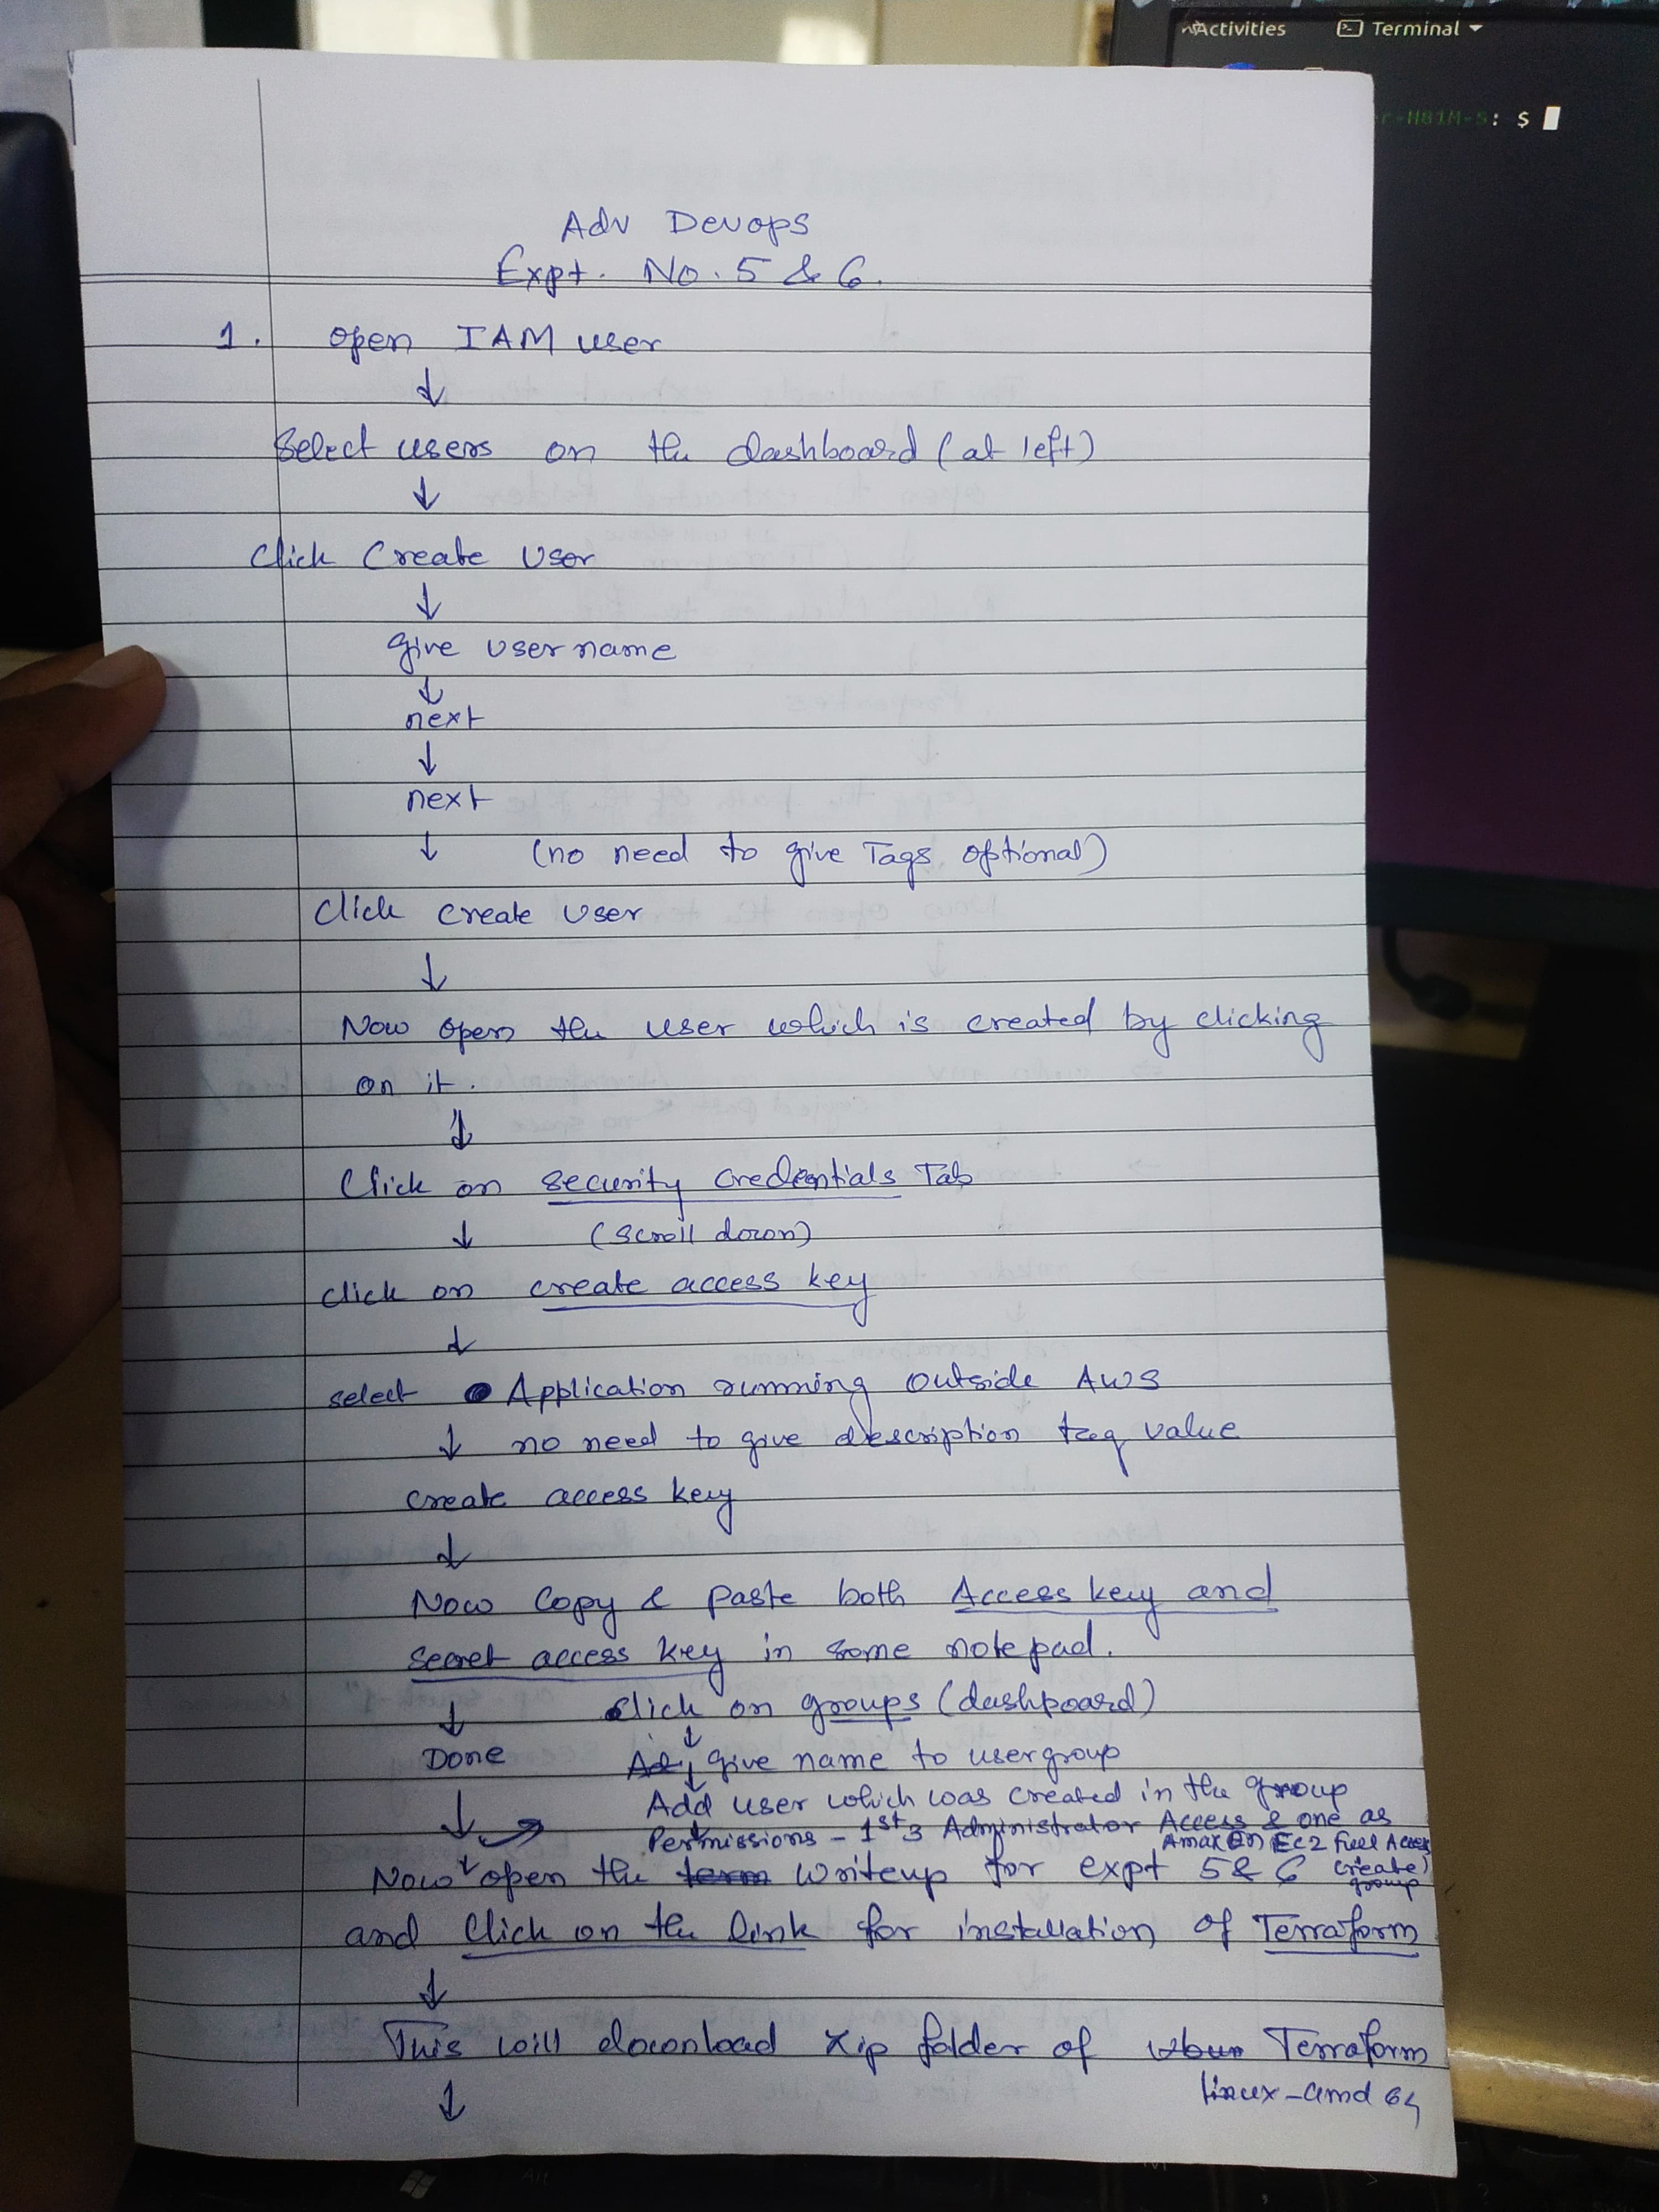 Activities Terminal
r-H81M-S: $
Adv Devops
Expt. No. 5 & 6.
1. open IAM user
↓
Select users on the dashboard (at left)
↓
Click Create User
↓
give username
↓
next
↓
next
↓ (no need to give Tags optional)
Click create user
↓
Now open the user which is created by clicking
on it.
↓
Click on security credentials Tab
↓ (scroll down)
click on create access key
↓
select Application running outside AWS
↓ no need to give description tag value
create access key
↓
Now copy & paste both Access key and
secret access key in some notepad.
↓ Click on groups (dashboard)
↓
Done Ad, give name to usergroup
↓
Add user which was created in the group
↓ Permissions - 1st 3 Administrator Access & one as
Amazon EC2 Full Access
Now open the term writeup for expt 5 & 6 create group
and Click on the link for installation of Terraform
↓
This will download zip folder of Terraform
linux-amd 64
↓